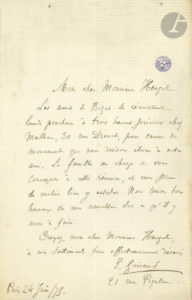 Mon cher Monsieur Heugel
Les amis de Bizet se réunissent
lundi prochain à trois heures précises chez
Monsieur, 30 rue Drouot, pour causer du
monument que nous voulons élever à notre
ami. La famille me charge de vous
convoquer à cette réunion, et vous prie
de vouloir bien y assister. Nous serions bien
heureux de vous consulter sur ce qu'il y
aura à faire.
Croyez, mon cher Monsieur Heugel
à mes sentiments bien affectueusement dévoués
E. Guiraud
21 rue Pigalle
Paris 24 Juin/75.